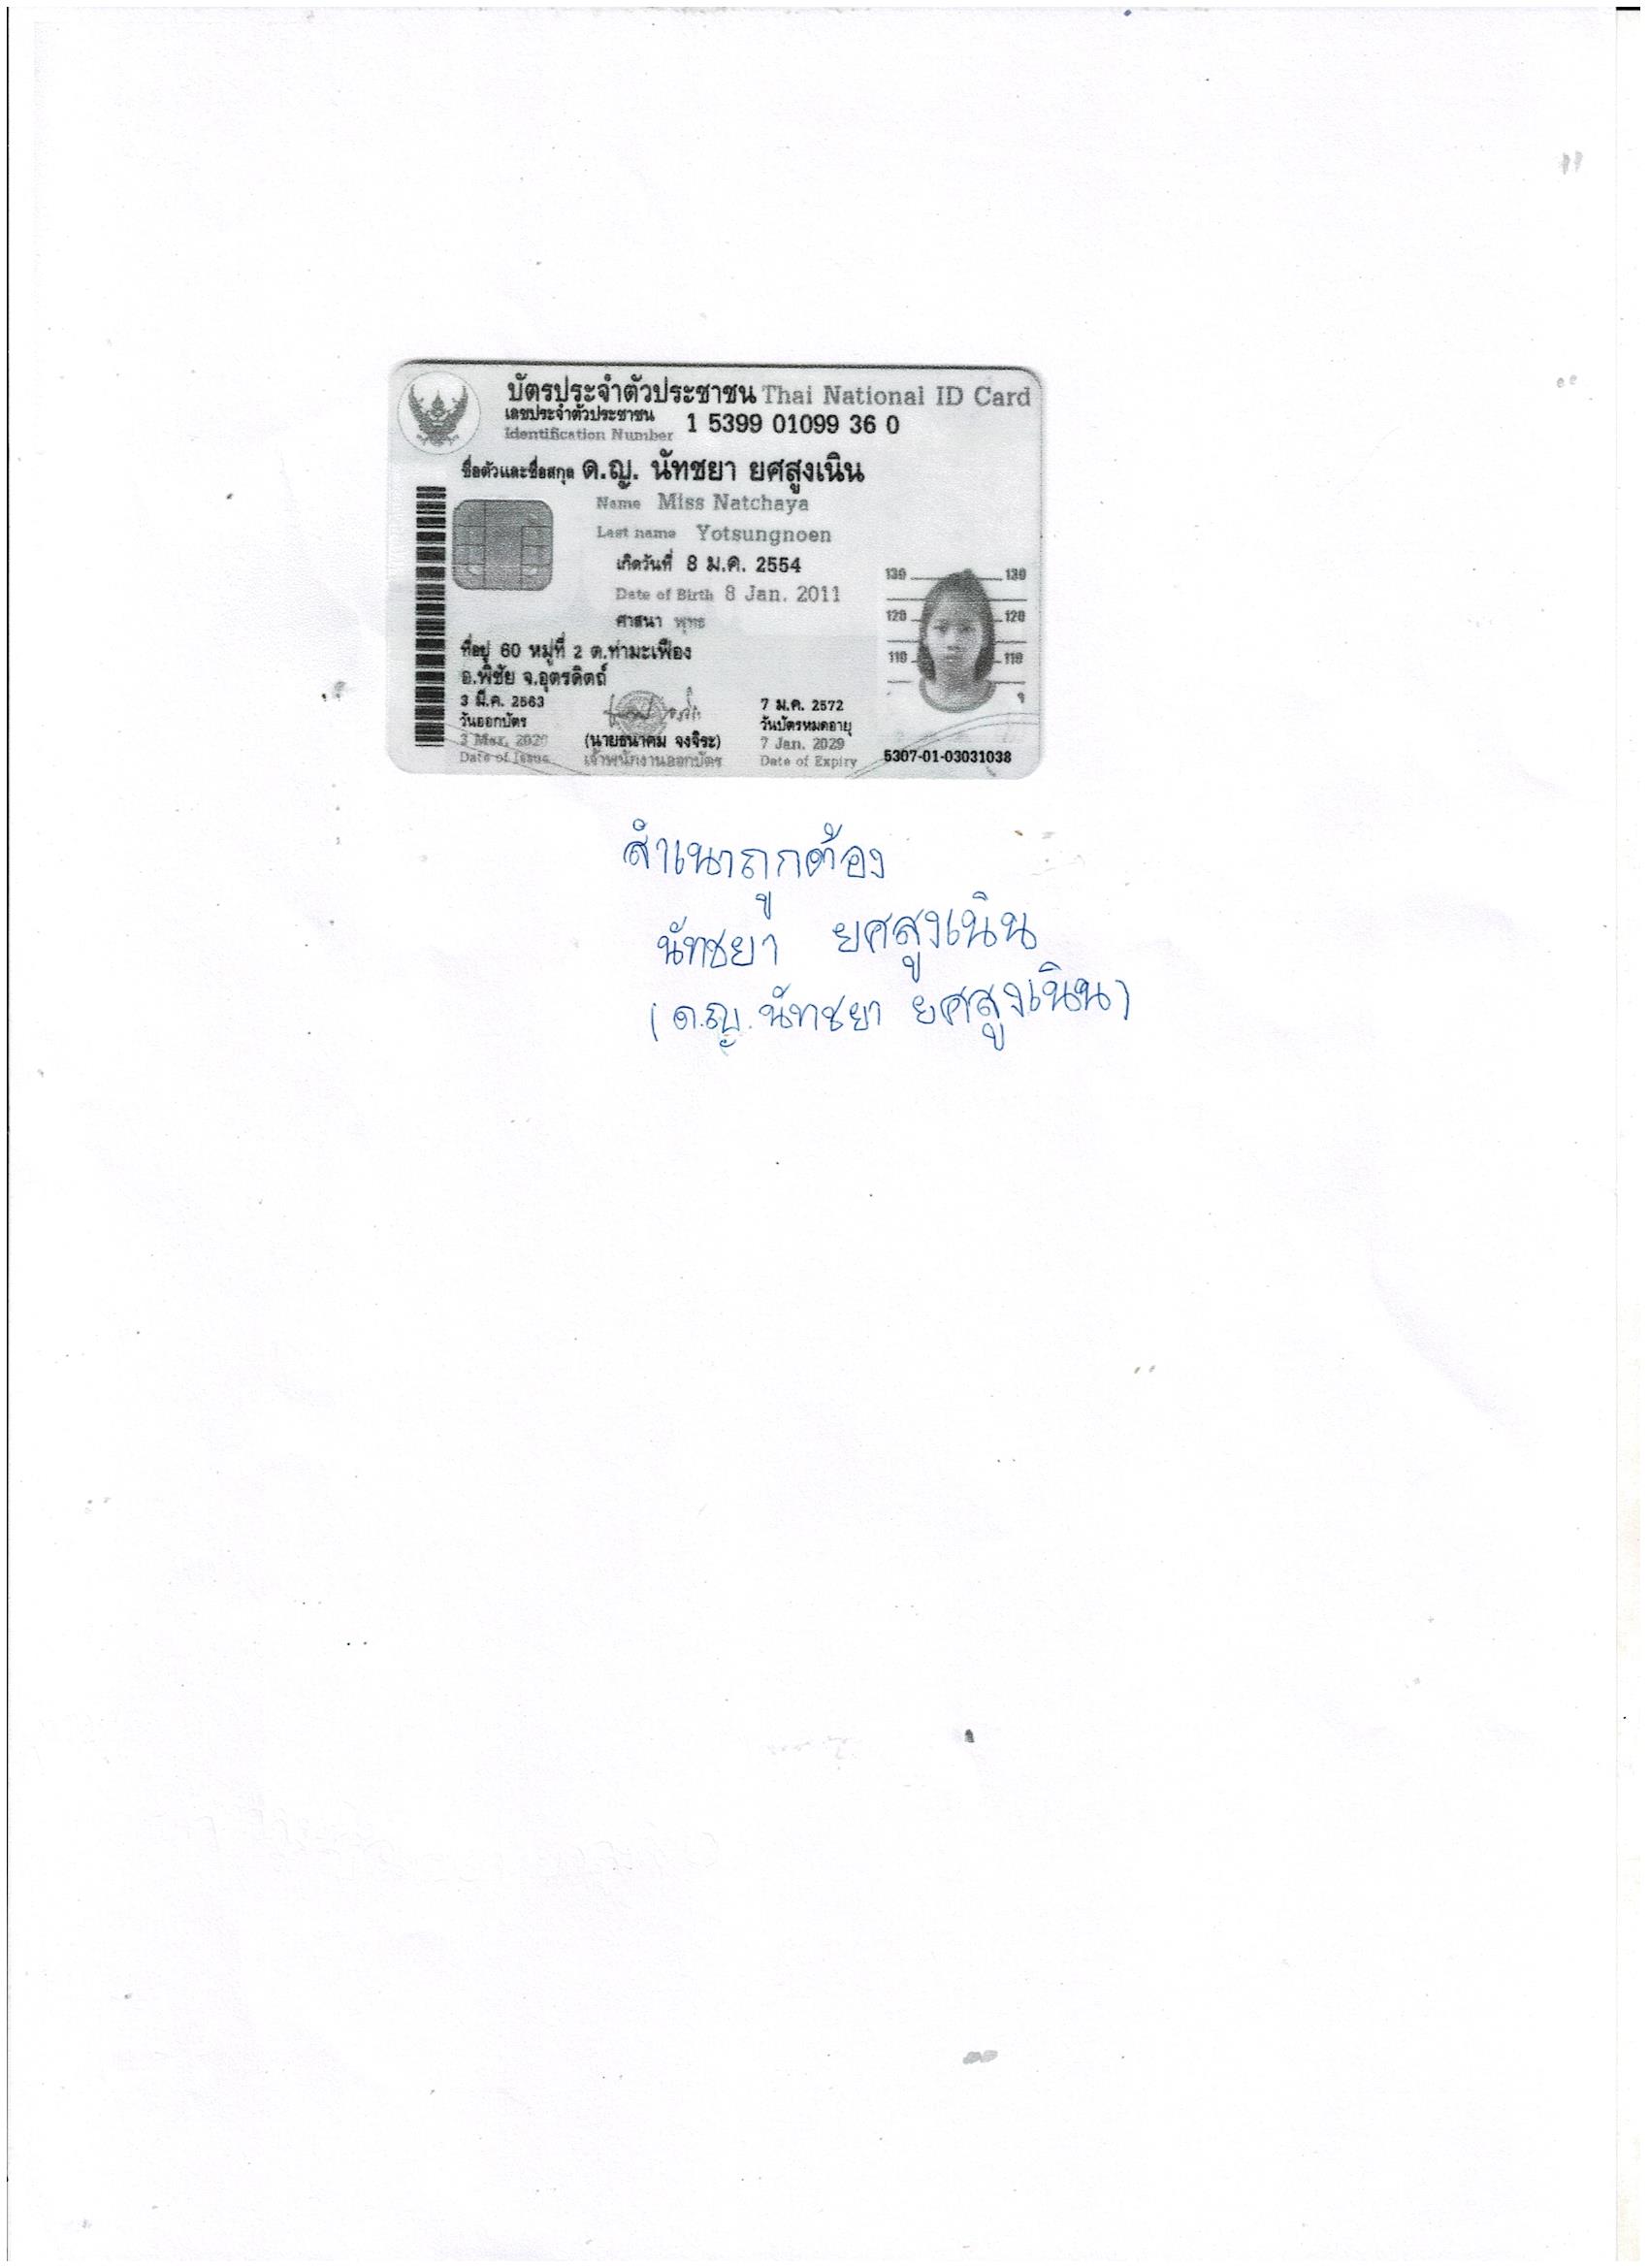 บัตรประจำตัวประชาชน Thai National ID Card
เลขประจำตัวประชาชน
Identification Number 1 5399 01099 36 0
ชื่อตัวและชื่อสกุล ด.ญ. นัทชยา ยศสูงเนิน
Name Miss Natchaya
Last name Yotsungnoen
เกิดวันที่ 8 ม.ค. 2554
Date of Birth 8 Jan. 2011
ศาสนา พุทธ
ที่อยู่ 60 หมู่ที่ 2 ต.ท่ามะเฟือง
อ.พิชัย จ.อุตรดิตถ์
3 มี.ค. 2563
วันออกบัตร
3 Mar. 2020
Date of Issue
(นายธนาคม จงจิระ)
เจ้าพนักงานออกบัตร
7 ม.ค. 2572
วันบัตรหมดอายุ
7 Jan. 2029
Date of Expiry
130 130
120 120
110 110
5307-01-03031038
สำเนาถูกต้อง
นัทชยา ยศสูงเนิน
(ด.ญ. นัทชยา ยศสูงเนิน)